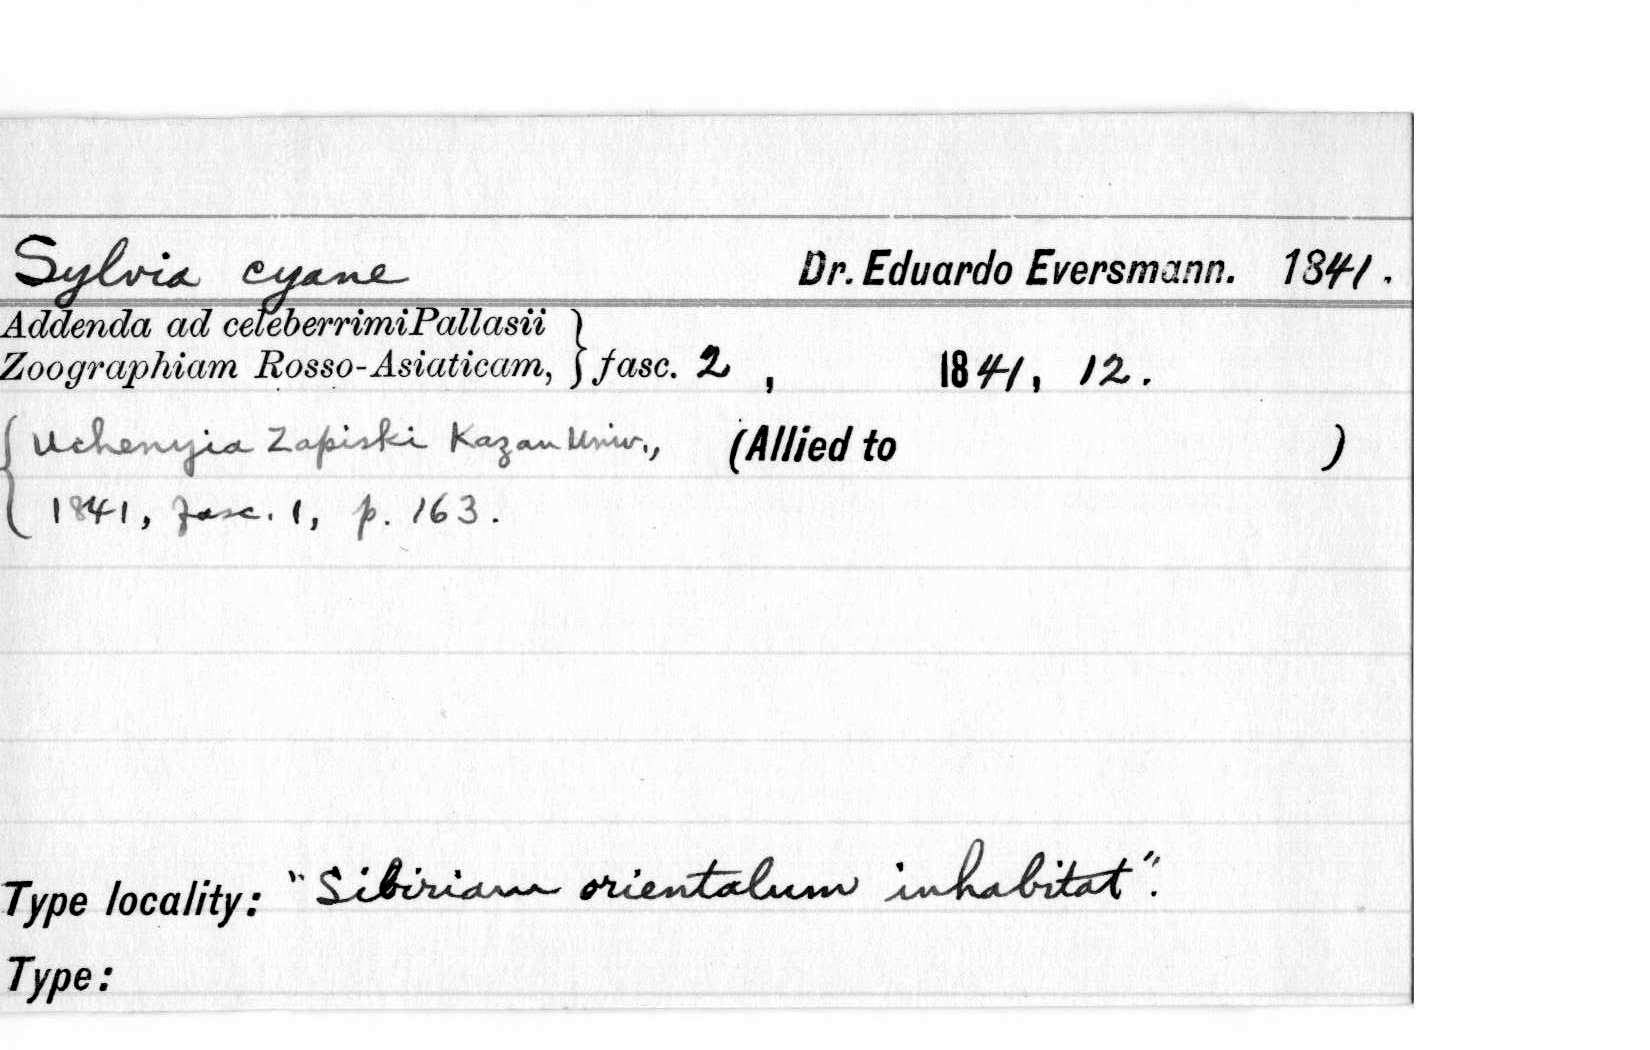 Sylvia cyane Dr. Eduardo Eversmann. 1841.
Addenda ad celeberrimi Pallasii
Zoographiam Rosso-Asiaticam, } fasc. 2, 1841, 12.
{ Uchenyia Zapiski Kazan Univ., (Allied to )
1841, fasc. 1, p. 163.
Type locality: "Sibiriam orientalum inhabitat".
Type: